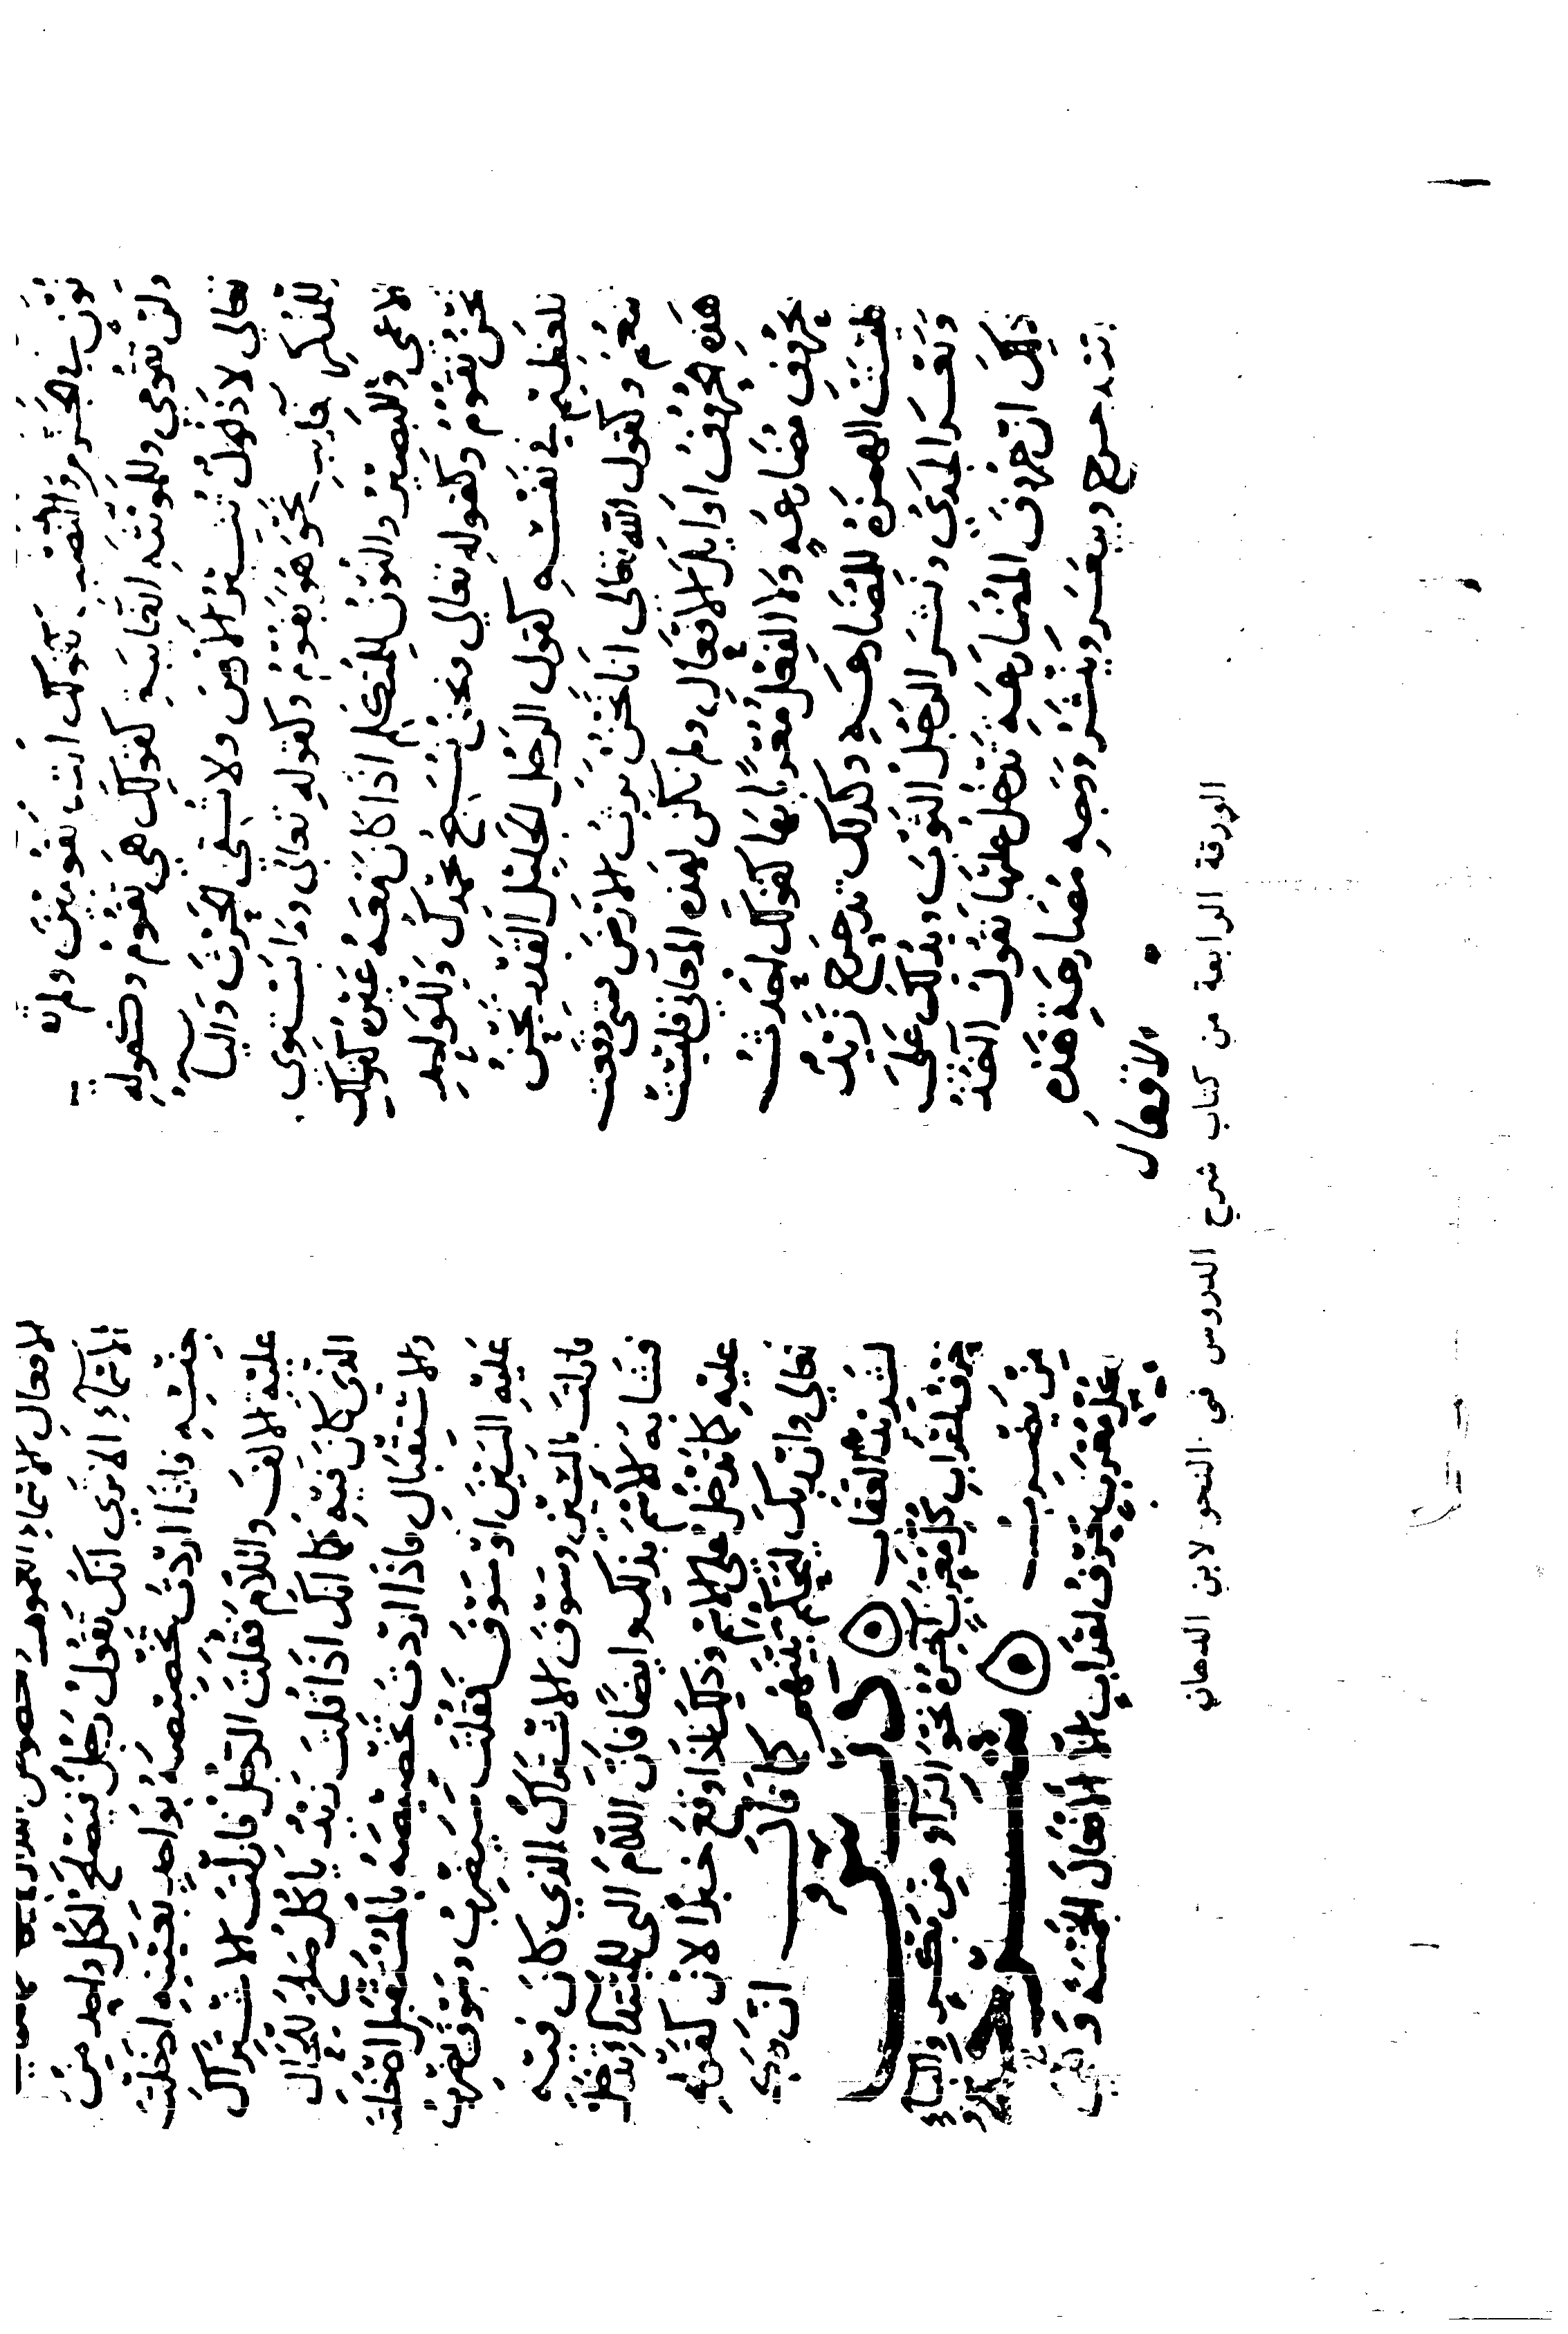 نون في الجزم والنصب كقولك انت تقومين ولم
ولن تقومي وللمونثه الغايبه كقولك هي تقوم وكقوله
تعالى لا ذلول تثير الارض ولا تسقي الحرث واليآ
للمذكر الغايب نحو هو يقوم وكقوله تعالى وما يستوي
الاعمى والبصير والنون للمتكلم اذا كان معه غيره كقولك
نحن نقوم وكقوله تعالى ونحن نسبح بحمدك وللواحد
العظيم في نفسه كقول الرجل الجليل القدر نحن
وكقول الله تعالى انا نحن نرث الارض ومتى وقعت
هذه الحروف اوايل الافعال ولم تكن لهذه المعاني فليست
بحروف مضارعه ولا الفعل معربا بها كقولك احدث
فليست الهمزة للمضارعه وكذلك تدحرج زيد
الجدي ونشر الرجل الثوب ويدلك على
ذلك ان حروف المضارعه تدخل عليها تقول
يتدحرج وينشر ووجه مضارعه هذه
الافعال
للافعال الاسماء العموم
الاسمآء الا ترى انك تقول رجل فيصلح لكل واحد من
جنسه فاذا اردت تخصيصه بواحد بعينه ادخلت
عليه الالف واللام فقلت الرجل فازلت الاشتراك
الذي كان فيه كما انك اذا قلت زيد ياكل صلح للحال
والاستقبال فاذا اردت تخصيصه بالمستقبل ادخلت
عليه السين او سوف فقلت سيضرب وسوف يضرب
فازلت بالسين وسوف الاشتراك الذي كان فيه
فشابه الاسم بذلك وايضا فان اللام التي للابتدآ تدخل
عليه كما تدخل على الاسم وذلك اذا وقع خبرا لان كقوله
تعالى وان ربك ليحكم بينهم كما قال ان ربه
لشديد العقاب
حرف اعراب كل معرب اخره نحو الرآ من بكر والبآء
من يضرب
كل معرب بحرف اعراب الا الافعال الخمسه وهي
الورقة الرابعة من كتاب شرح الدروس في النحو لابن الدهان